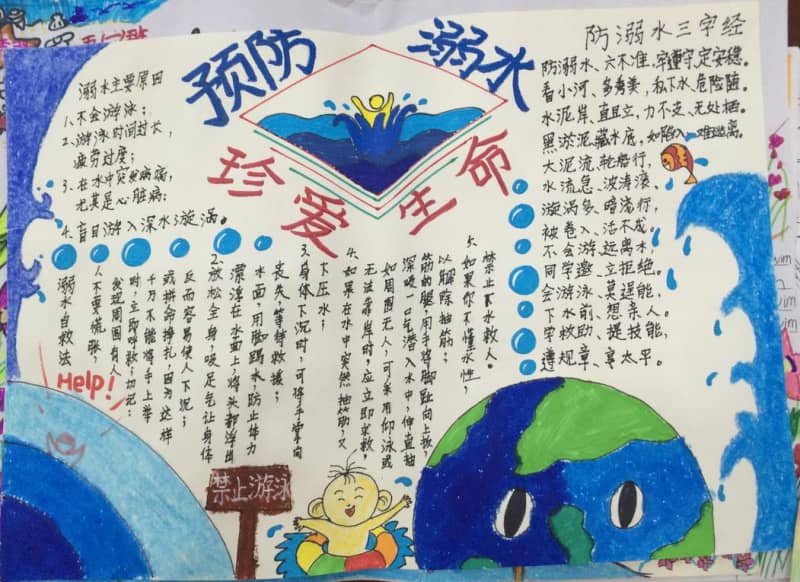 预防溺水
珍爱生命
溺水主要原因
1、不会游泳；
2、游泳时间过长，
疲劳过度；
3、在水中突发疾病，
尤其是心脏病；
4、盲目游入深水漩涡。
溺水自救法
1、不要慌张，
发现周围有人
时，立即呼救；切记：
千万不能将手上举
或拼命挣扎，因为这样
反而容易使人下沉；
2、放松全身，吸足气让身体
漂浮在水面上，将头部浮出
水面，用脚踢水，防止体力
丧失，等待救援；
3、身体下沉时，可将手掌向
下压水；
4、如果在水中突然抽筋，又
无法靠岸时，应立即求救
如周围无人，可采用仰泳或
深吸一口气潜入水中，伸直抽
筋的腿，用手将脚趾向上扳，
以解除抽筋；
5、如果你不懂水性，
禁止下水救人。
防溺水三字经
防溺水、六不准，牢遵守、定安稳。
看小河、多秀美，私下水、危险随。
水泥岸、直且立，力不支、无处栖。
黑淤泥、藏水底，如陷入、难逃离。
大泥流、轮船行，
水流急、波涛滚，
漩涡多、暗流行，
被卷入、活不成。
不会游、远离水，
同学邀、立拒绝。
会游泳、莫逞能，
下水前、想亲人。
学救助、提技能，
遵规章、享太平。
Help!
禁止游泳